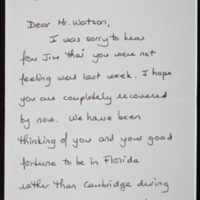 Dear Mr. Watson,
I was sorry to hear
from Jim that you were not
feeling well last week. I hope
you are completely recovered
by now. We have been
thinking of you and your good
fortune to be in Florida
rather than Cambridge during